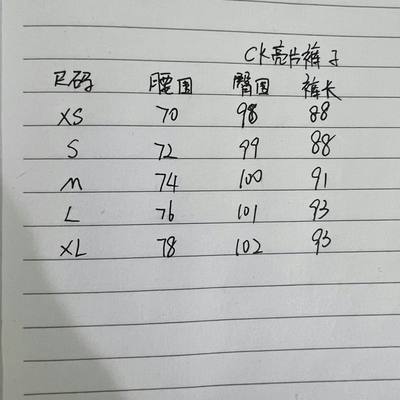 CK亮片裤子
尺码 腰围 臀围 裤长
XS 70 98 88
S 72 99 88
M 74 100 91
L 76 101 93
XL 78 102 93